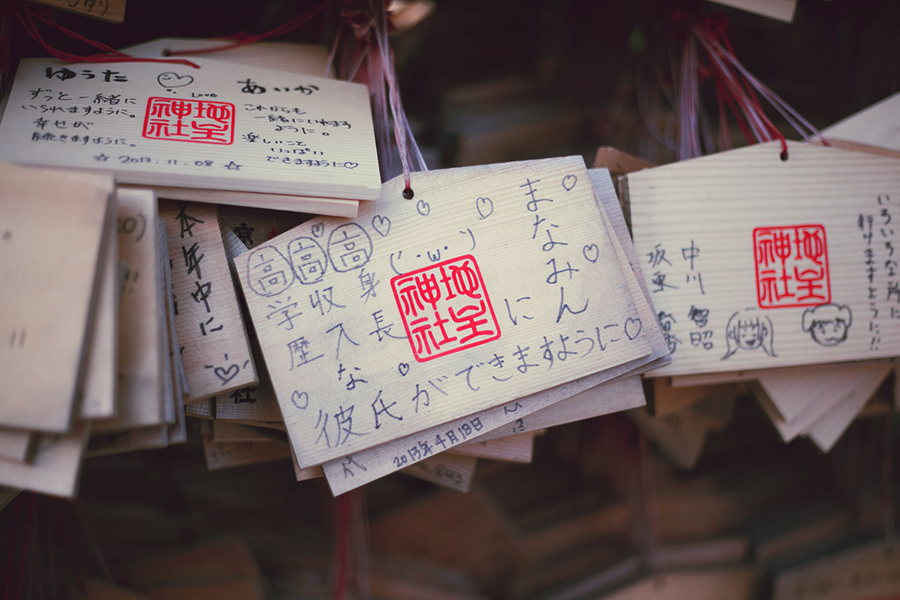 ゆうた
あいか
Love
ずっと一緒に
いられますように。
幸せが
続きますように。
これからも
一緒にいれます
ように。
楽しいこと
いっぱい
できますように♡
☆ 2013.11.08 ☆
地主
神社
本年中に
まなみん
に
高 高 高
身長
収入な
学歴
('・ω・`)
地主
神社
彼氏ができますように♡
2013年4月18日
いろいろな所に
行けますように!!
地主
神社
中川 智昭
坂東